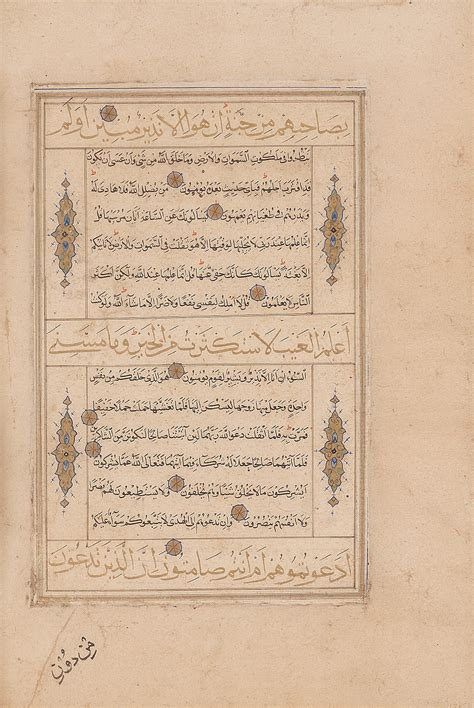 بصاحبهم من جنة ان هو الا نذير مبين اولم
ينظروا في ملكوت السموات والارض وما خلق الله من شئ وان عسى ان يكون
قد اقترب اجلهم فباي حديث بعده يومنون من يضلل الله فلا هادي له
ويذرهم في طغيانهم يعمهون يسالونك عن الساعة ايان مرسيها قل
انما علمها عند ربي لا يجليها لوقتها الا هو ثقلت في السموات والارض لا تاتيكم
الا بغتة يسالونك كانك حفي عنها قل انما علمها عند الله ولكن اكثر
الناس لا يعلمون قل لا املك لنفسي نفعا ولا ضرا الا ما شاء الله ولو كنت
اعلم الغيب لاستكثرت من الخير وما مسني
السوء ان انا الا نذير وبشير لقوم يومنون هو الذي خلقكم من نفس
واحدة وجعل منها زوجها ليسكن اليها فلما تغشيها حملت حملا خفيفا
فمرت به فلما اثقلت دعوا الله ربهما لئن اتيتنا صالحا لنكونن من الشاكرين
فلما اتيهما صالحا جعلا له شركاء فيما اتيهما فتعالى الله عما يشركون
ايشركون ما لا يخلق شيئا وهم يخلقون ولا يستطيعون لهم نصرا
ولا انفسهم ينصرون وان تدعوهم الى الهدى لا يتبعوكم سواء عليكم
ادعوتموهم ام انتم صامتون ان الذين تدعون
من دون